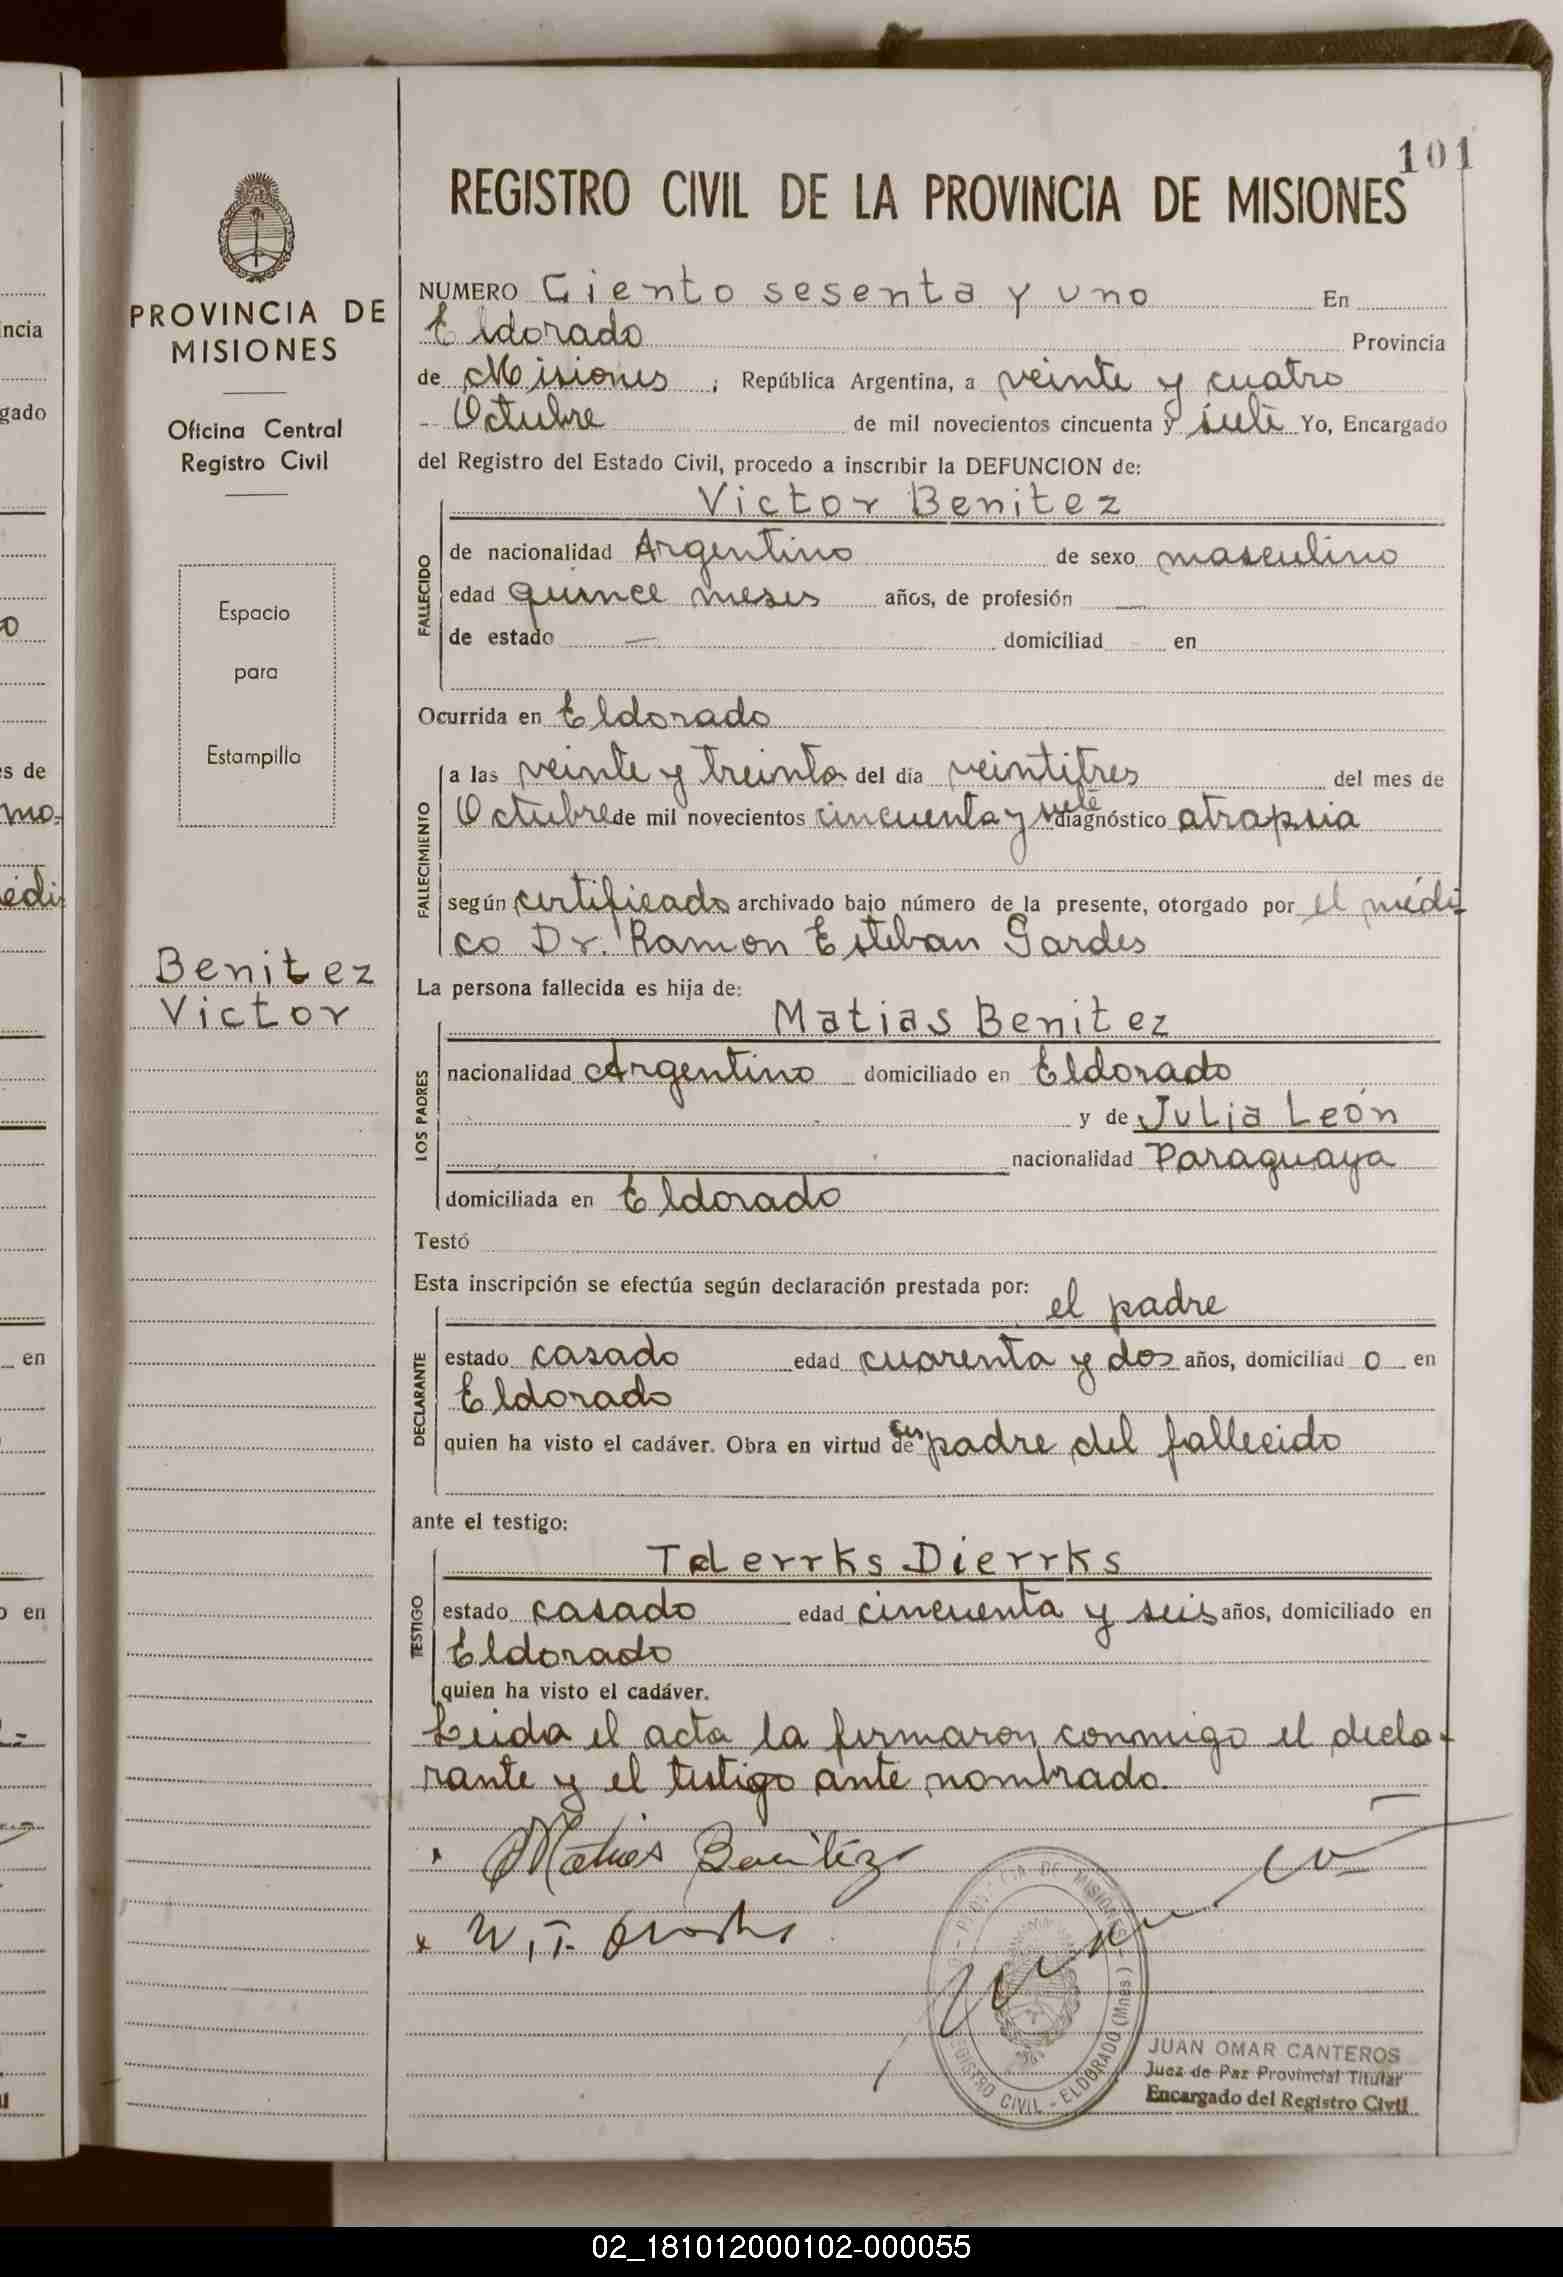 101
REGISTRO CIVIL DE LA PROVINCIA DE MISIONES
PROVINCIA DE
MISIONES
Oficina Central
Registro Civil
Espacio
para
Estampilla
Benitez
Victor
NUMERO Ciento sesenta y uno En
Eldorado Provincia
de Misiones, República Argentina, a veinte y cuatro
Octubre de mil novecientos cincuenta y siete Yo, Encargado
del Registro del Estado Civil, procedo a inscribir la DEFUNCION de:
Victor Benitez
FALLECIDO
de nacionalidad Argentino de sexo masculino
edad quince meses años, de profesión —
de estado — domiciliad en
Ocurrida en Eldorado
FALLECIMIENTO
a las veinte y treinta del día veintitres del mes de
Octubre de mil novecientos cincuenta y siete diagnóstico atrapsia
según certificado archivado bajo número de la presente, otorgado por el médi-
co Dr. Ramon Esteban Gardes
La persona fallecida es hija de:
Matias Benitez
LOS PADRES
nacionalidad Argentino domiciliado en Eldorado
y de Julia León
nacionalidad Paraguaya
domiciliada en Eldorado
Testó
Esta inscripción se efectúa según declaración prestada por:
el padre
DECLARANTE
estado casado edad cuarenta y dos años, domiciliad o en
Eldorado
quien ha visto el cadáver. Obra en virtud de ser padre del fallecido
ante el testigo:
Dierrks
TESTIGO
estado casado edad cincuenta y seis años, domiciliado en
Eldorado
quien ha visto el cadáver.
Leida el acta la firmaron conmigo el decla-
rante y el testigo ante nombrado.
Matias Benitez
W. T.
PROVINCIA DE MISIONES
REGISTRO CIVIL - ELDORADO (Mnes.)
JUAN OMAR CANTEROS
Juez de Paz Provincial Titular
Encargado del Registro Civil
ncia
gado
o
s de
mo-
édi-
en
o en
02_181012000102-000055